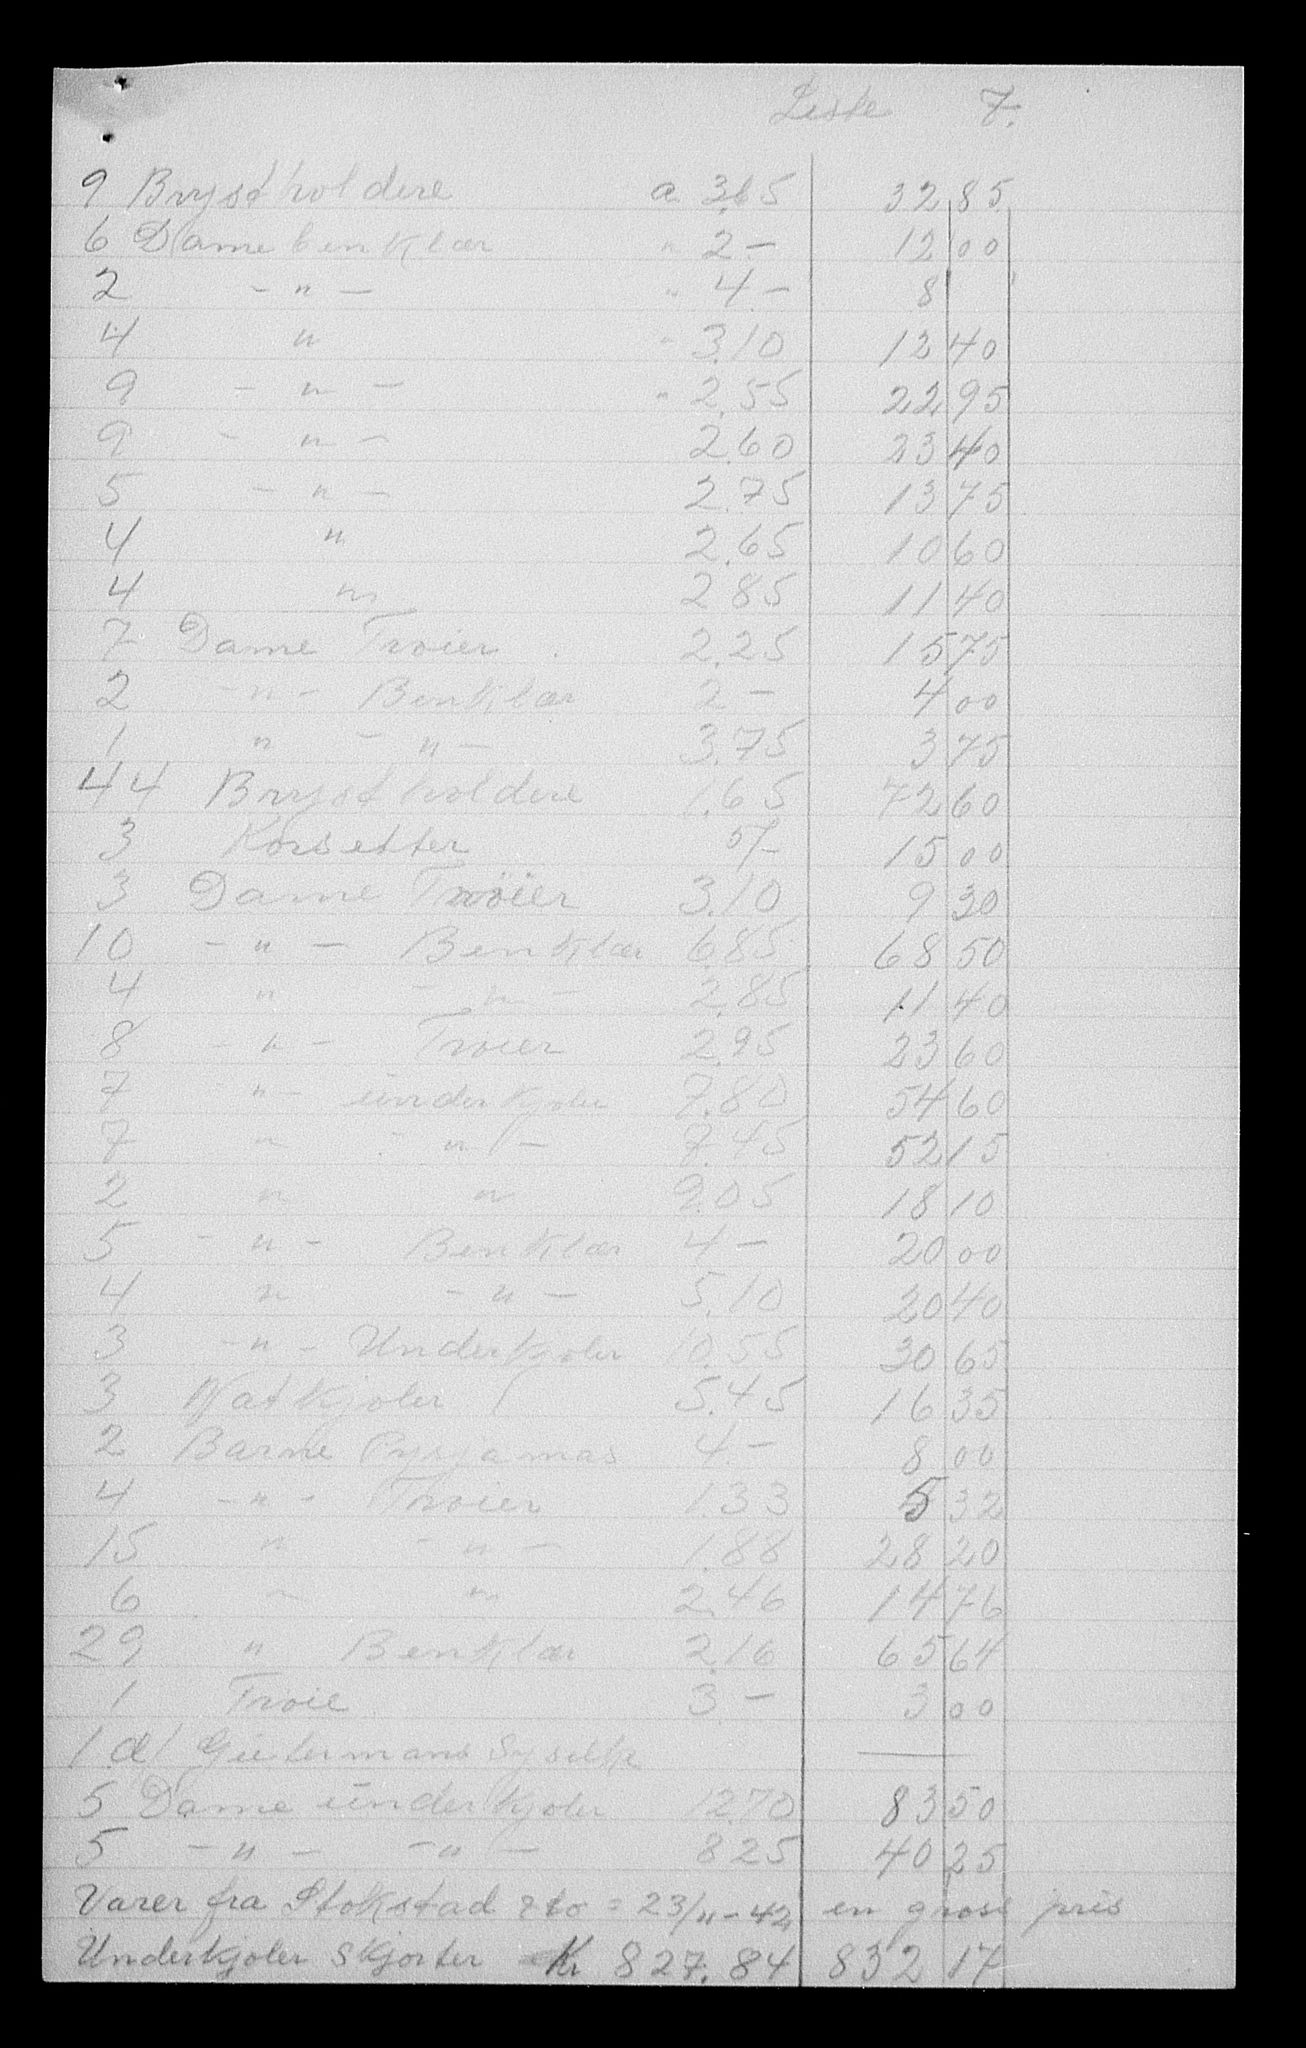 Liste 7.
9 Brystholdere a 3.65 32 85
6 Damebenklær " 2 - 12 00
2 - " - " 4 - 8
4 " " 3.10 12 40
9 - " - " 2.55 22 95
9 - " - 2.60 23 40
5 - " - 2.75 13 75
4 " 2.65 10 60
4 " 2 85 11 40
7 Dame Trøier 2.25 15 75
2 - " - Benklær 2 - 4 00
1 " - " - 3.75 3 75
44 Brystholdere 1.65 72 60
3 Korsetter 5/- 15 00
3 Dame Trøier 3.10 9 30
10 - " - Benklær 6.85 68 50
4 " - " - 2.85 11 40
8 - " - Trøier 2.95 23 60
7 " - underkjoler 7.80 54 60
7 " - " - 7.45 52 15
2 " " 9.05 18 10
5 - " - Benklær 4 - 20 00
4 " - " - 5.10 20 40
3 - " - Underkjoler 10.55 30 65
3 Natkjoler 5.45 16 35
2 Barne Pysjamas 4 - 8 00
4 - " - Trøier 1.33 5 32
15 " - " - 1.88 28 20
6 " " 2.46 14 76
29 " Benklær 2.16 65 64
1 Trøie 3 - 3 00
1 Gütermans Sysilke
5 Dame underkjoler 12.70 83 50
5 - " - - " - 8 25 40 25
Varer fra Stokstad = 23/11 - 42 en gross pris
Underkjoler Skjorter Kr 827.84 832 17